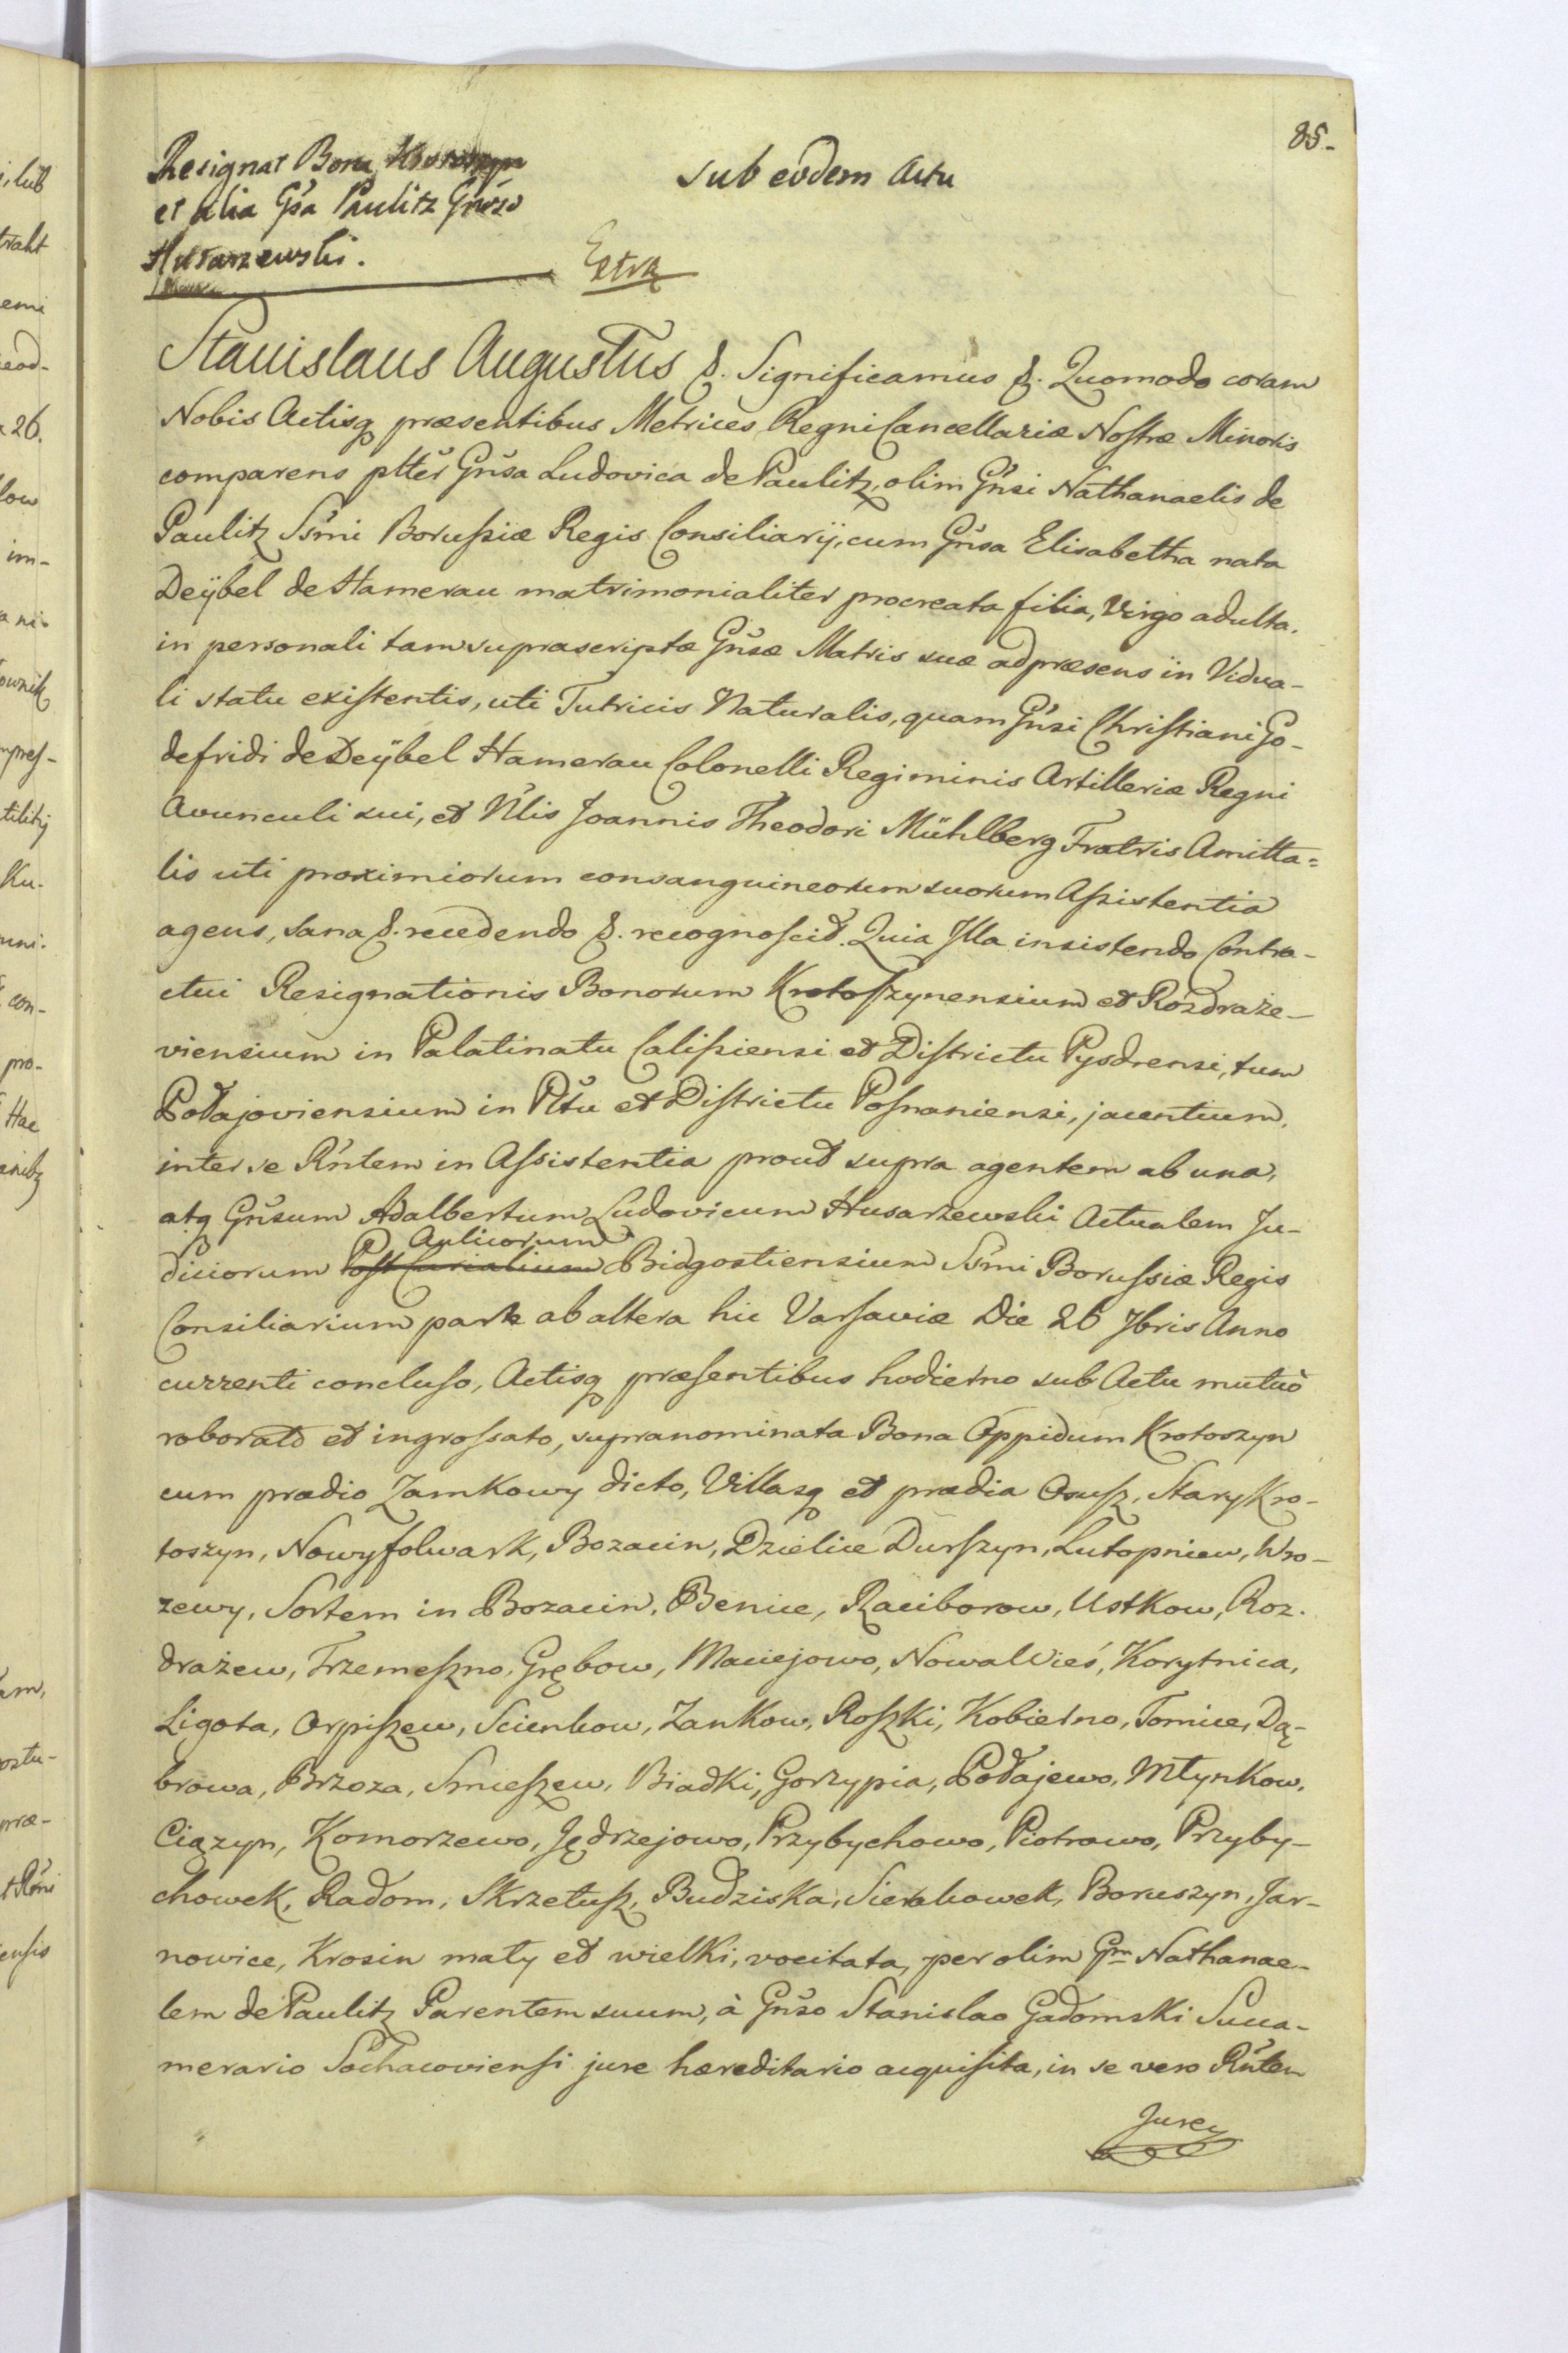 85.
Resignat Bona Krotoszyn
et alia Gsa Paulitz Gnoso
Husarzewski.
sub eodem Actu
Extra
Stanislaus Augustus &. Significamus &. Quomodo coram
Nobis Actisq præsentibus Metrices Regni Cancellariæ Nostræ Minoris
comparens plter Gnsa Ludovica de Paulitz, olim Gnsi Nathanaelis de
Paulitz Ssmi Borussiæ Regis Consiliarij, cum Gnsa Elisabetha nata
Deÿbel de Hamerau matrimonialiter procreata filia, Virgo adulta,
in personali tam suprascriptæ Gnsæ Matris suæ ad præsens in Vidua-
li statu existentis, uti Tutricis Naturalis, quam Gnsi Christiani Go-
defridi de Deÿbel Hamerau Colonelli Regiminis Artilleriæ Regni
Avunculi sui, et Nlis Joannis Theodori Mühlberg Fratris Amitta=
lis uti proximiorum consanguineorum suorum Assistentia
agens, sana &. recedendo &. recognoscit. Quia Illa insistendo Contra-
ctui Resignationis Bonorum Krotoszynensium et Rozdraże-
viensium in Palatinatu Calissiensi et Districtu Pysdrensi, tum
Połajoviensium in Pltu et Districtu Posnaniensi, jacentium,
inter se Rntem in Assistentia prout supra agentem ab una,
atq Gnsum Adalbertum Ludovicum Husarzewski Actualem Ju-
diciorum Post Curialium Aulicorum Bidgostiensium Ssmi Borussiæ Regis
Consiliarium parte ab altera hic Varsaviæ Die 26 7bris Anno
currenti concluso, Actisq præsentibus hodierno sub Actu mutuò
roborato et ingrossato, supranominata Bona Oppidum Krotoszyn
cum prædio Zamkowy dicto, Villasq et prædia Osusz, Stary Kro-
toszyn, Nowyfolwark, Bozacin, Dzielice Durszyn, Lutopniew, Wro-
zewy, Sortem in Bozacin, Benice, Raciborow, Ustkow, Roz-
drażew, Trzemeszno, Grębow, Maciejowo, Nowa Wieś, Korytnica,
Ligota, Orpiszew, Scienkow, Zankow, Roszki, Kobierno, Tomice, Dą-
browa, Brzoza, Smieszew, Biadki, Gorzypia, Połajewo, Młynkow,
Ciązyn, Komorzewo, Jędrzejowo, Przybychowo, Piotrowo, Przyby-
chowek, Radom, Skrzetusz, Budziska, Sierakowek, Boruszyn, Jar-
nowice, Krosin mały et wielki, vocitata, per olim Gm Nathanae-
lem de Paulitz Parentem suum, à Gnso Stanislao Gadomski Succa-
merario Sochacoviensi jure hæreditario acquisita, in se vero Rntem
Jure